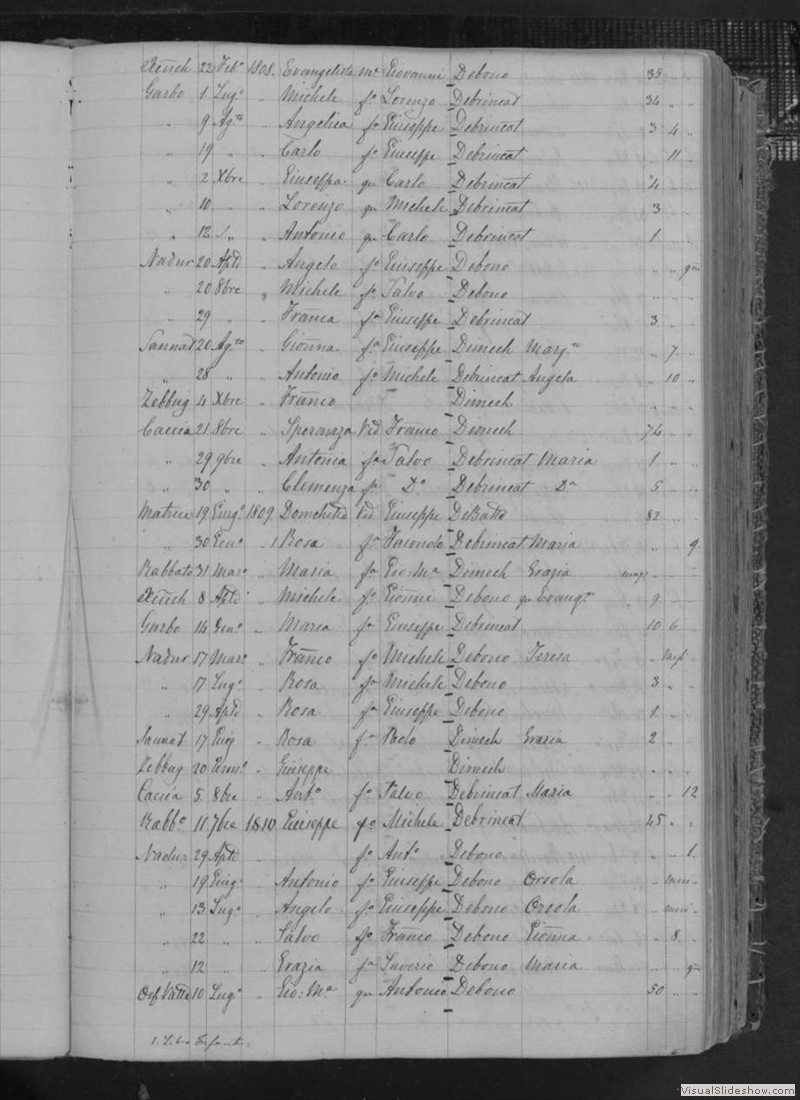 Xeuch 22 Feb.o 1808. Evangelista m.e Giovanni Debono 35 " "
Garbo 1 Lug.o " Michele f.o Lorenzo Debrincat 34 " "
" 9 Ag.to " Angelica f.a Giuseppe Debrincat 3 4 "
" 19 " " Carlo f.o Giuseppe Debrincat " 11
" 2 Xbre " Giuseppa qm Carlo Debrincat 4
" 10 " " Lorenzo qm Michele Debrincat 3
" 12 " " Antonio qm Carlo Debrincat 1
Nadur 20 Aple " Angelo f.o Giuseppe Debono " " gni
" 20 8bre " Michele f.o Salvo Debono " "
" 29 " " Franca f.a Giuseppe Debrincat 3 "
Sannat 20 Ag.to " Gionna f.a Giuseppe Dimech Marg.ta " 7 "
" 28 " " Antonio f.o Michele Debrincat Angela " 10 "
Zebbug 4 Xbre " Franco Dimech " "
Caccia 21 8bre " Speranza Vid Franco Dimech 74
" 29 9bre " Antonia f.a Salvo Debrincat Maria 1 " "
" 30 " " Clemenza f.a D.o Debrincat D.a 5 "
Matrice 19 Giug.o 1809 Vid Giuseppe 82
" 30 Gen.o " Rosa f.a Debrincat Maria " 9
Rabbato 31 Mar.o " Maria f.a Gio: M.a Dimech Grazia
Xeuch 8 Aple " Michele f.o Gionni Debono qm Evang.ta " 9 "
Garbo 14 Gen.o " Maria f.a Giuseppe Debrincat 10 6
Nadur 17 Mar.o " Franco f.o Michele Debono Teresa
" 17 Lug.o " Rosa f.a Michele Debono 3 "
" 29 Aple " Rosa f.a Giuseppe Debono 1 "
Sannat 17 Giug " Rosa f.a Paolo Dimech Grazia 2 "
Zebbug 20 " Giuseppe Dimech
Caccia 5 8bre " Ant.o f.o Salvo Debrincat Maria " " 12
Rabb.o 11 7bre 1810 Giuseppe f.o Michele Debrincat 45 " "
Nadur 29 Aple " f.o Ant.o Debono " " 1
" 19 Giug.o Antonio f.o Giuseppe Debono Orsola
" 13 Lug.o " Angelo f.o Giuseppe Debono Orsola
" 22 " " Salvo f.o Franco Debono Gionna " 8
" 12 " Grazia f.a Saverio Debono Maria " gni
10 Lug.o " Gio: M.a qm Antonio Debono 50 " "
1. Libro
VisualSlideshow.com